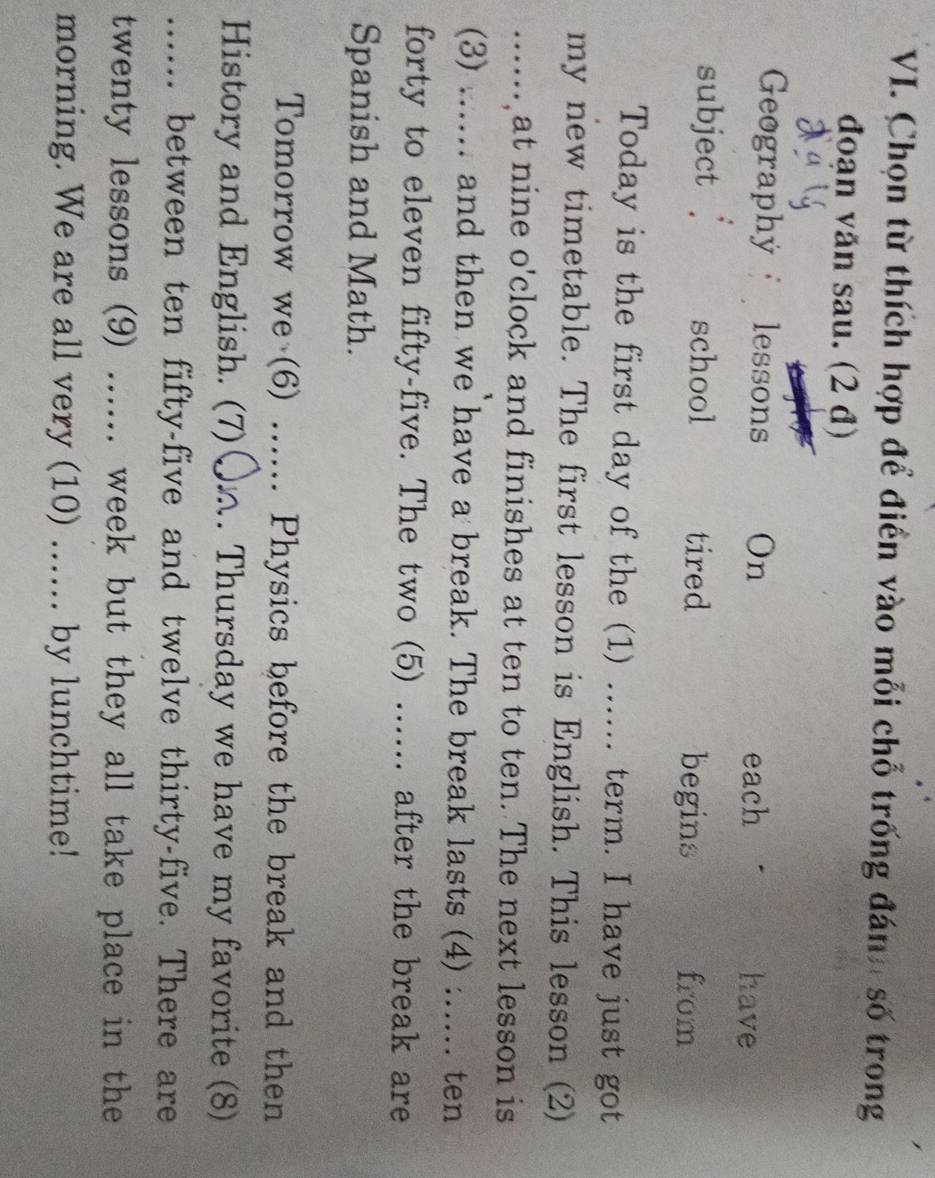 VI. Chọn từ thích hợp để điền vào mỗi chỗ trống đánh số trong
đoạn văn sau. (2 đ)
địa lý
Geography lessons On each have
subject school tired begins from
Today is the first day of the (1) ...... term. I have just got
my new timetable. The first lesson is English. This lesson (2)
......, at nine o'clock and finishes at ten to ten. The next lesson is
(3) ...... and then we have a break. The break lasts (4) ...... ten
forty to eleven fifty-five. The two (5) ...... after the break are
Spanish and Math.
Tomorrow we (6) ...... Physics before the break and then
History and English. (7) On.. Thursday we have my favorite (8)
...... between ten fifty-five and twelve thirty-five. There are
twenty lessons (9) ...... week but they all take place in the
morning. We are all very (10) ...... by lunchtime!